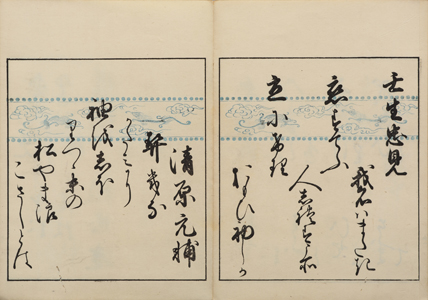 壬生忠見
恋すてふ
我名ハまたき
立にけり
人しれすこそ
おもひ初しか
清原元輔
契きな
かたみに
袖をしほ
りつゝ末の
松やま浪
こさしとは